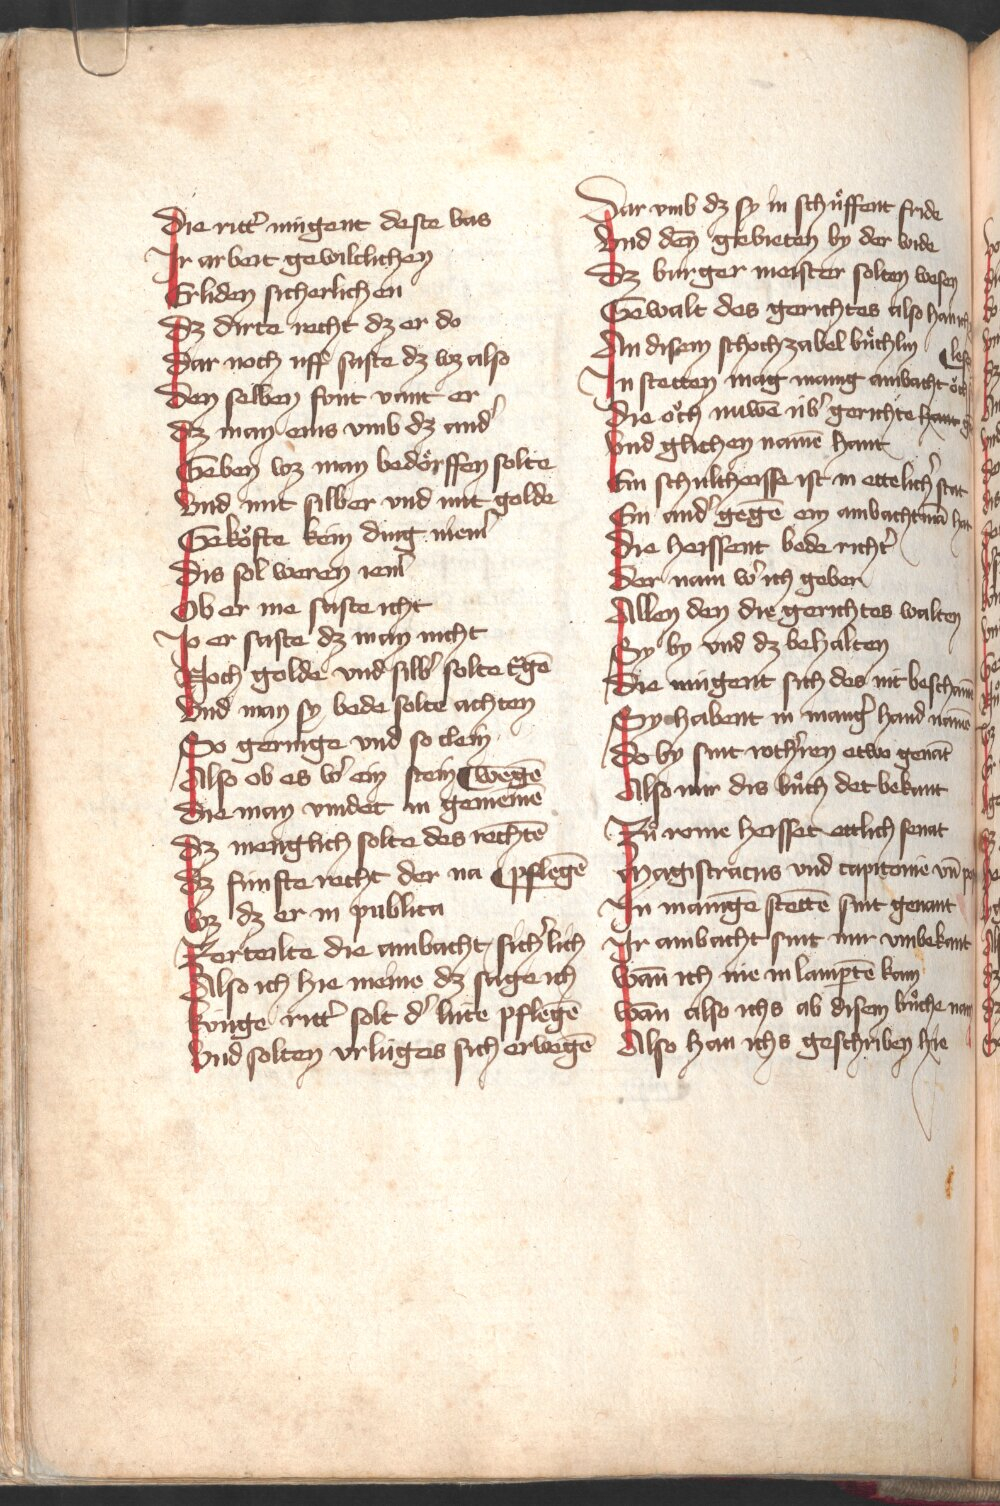 Die ritt' mügent deste bas
Ir arbeit gewilclichen
Erliden sicherlichen
Dz dirte recht dz er do
Dar noch uff saste dz wz also
Den selben font vant er
Dz man eins vmb dz and'
Geben wz man bedörffen solte
Vnd mit silber vnd mit golde
Geköfte kein ding niem'
Dis sol weren iem'
Ob er me saste icht
Jo er saste dz man nicht
Noch golde vnd silb' solte
Vnd man sy bede solte achten
So geringe vnd so clein
Also ob es w' ein stein ¶ wegē
Die man vindet in gemeinē
Dz menglich solte des rechtē
Dz fünfte recht der na ¶ pflegē
Wz dz er in publica
Verteilte die ambacht sich'lich
Also ich hie meine dz sage ich
Künge ritt' solt d' lüte pflegē
Vnd solten vrlüges sich erwegē
Dar vmb dz sy in schüffent fride
Vnd den gebieten by der wide
Dz burger meister solten wesen
Gewalt des gerichtes also han ich
An disem schochzabel büchlin ¶
In stetten mag manig ambacht öch
Die öch nuwē üb' gerichte
Vnd glichen namē hant
Ein schultheisse ist in ettelich' stat
Ein and' gegē ein ambachtmā hat
Die heissent bede richt'
Der nam w' ich geber
Allen den die gerichtes walten
Sy by vnd dz behalten
Die mügent sich des nit
Sy habent in mang' hand namē
Do by sint roth'ren etwo genāt
Also mir dis büch det bekant
Zů rome heisset ettlich senat
Magistratus vnd capitonie vn̄
In manigē stettē sint genant
Ir ambacht sint mir vnbekant
Wan̄ ich nie in lampartē kam
Wan̄ also ichs ab disem büche nam
Also han ichs geschriben hie